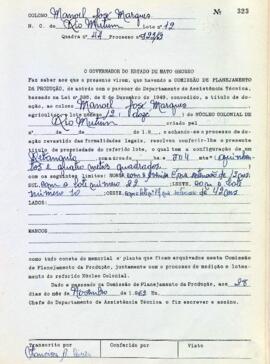 Nº 323
COLONO Manoel José Marques
N. C. de Rio Mutum Lote nº 12
Quadra nº 47 Processo nº
O GOVERNADOR DO ESTADO DE MATO GROSSO
Faz saber aos que a presente virem, que havendo a COMISSÃO DE PLANEJAMENTO
DA PRODUÇÃO, de acôrdo com o parecer do Departamento de Assistência Técnica,
baseado na Lei nº 336, de 6 de Dezembro de 1949, concedido, a título de doa-
ção, ao colono Manoel José Marques
agricultor, o lote número 12 (doze) do NÚCLEO COLONIAL DE
Rio Mutum criado pelo
nº de de de 1.9 , e achando-se o processo de doa-
ção revestido das formalidades legais, resolveu conferir-lhe o presente
título de propriedade do referido lote, o qual tem a configuração de um
Retangulo com a área de 504 m2 (quinhen-
tos e quatro metros quadrados
com os seguintes limites: NORTE com a
SUL com o lote numero 22 LESTE com o lote
numero 10 OESTE
LADOS:
MARCOS
como tudo consta do memorial e planta que ficam arquivados nesta Comissão
de Planejamento da Produção, juntamente com o processo de medição e lotea-
mento do referido Núcleo Colonial.
Dado e passado na Comissão de Planejamento da Produção, aos 28
dias do mês de Novembro de 1.963
Chefe do Departamento de Assistência Técnica o fiz escrever e assino.
Transcrito por Conferido por Visto